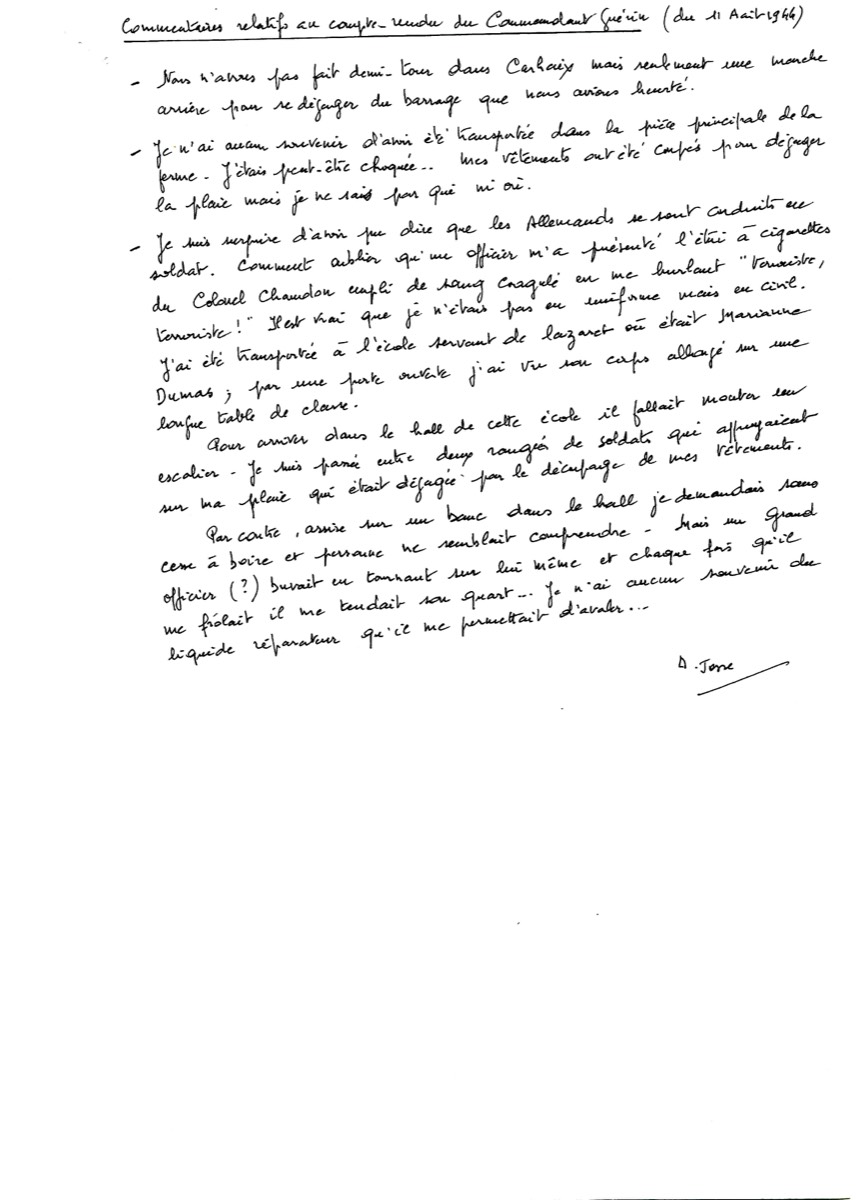 Commentaires relatifs au compte-rendu du Commandant Guérin (du 11 Août 1944)
- Nous n'avons pas fait demi-tour dans Carhaix mais seulement une marche
arrière pour se dégager du barrage que nous avions heurté.
- Je n'ai aucun souvenir d'avoir été transportée dans la pièce principale de la
ferme - J'étais peut-être choquée.. mes vêtements ont été coupés pour dégager
la plaie mais je ne sais par qui ni où.
- Je suis surprise d'avoir pu dire que les Allemands se sont conduits en
soldat. Comment oublier qu'un officier m'a présenté l'étui à cigarettes
du Colonel Chandon empli de sang coagulé en me hurlant "terroriste,
terroriste !" Il est vrai que je n'étais pas en uniforme mais en civil.
J'ai été transportée à l'école servant de lazaret où était Marianne
Dumas ; par une porte ouverte j'ai vu son corps allongé sur une
longue table de classe.
Pour arriver dans le hall de cette école il fallait monter un
escalier - Je suis passée entre deux rangées de soldats qui appuyaient
sur ma plaie qui était dégagée par le découpage de mes vêtements.
Par contre, assise sur un banc dans le hall je demandais sans
cesse à boire et personne ne semblait comprendre - Mais un grand
officier (?) buvait en tournant sur lui même et chaque fois qu'il
me frôlait il me tendait son quart... Je n'ai aucun souvenir du
liquide réparateur qu'il me permettait d'avaler...